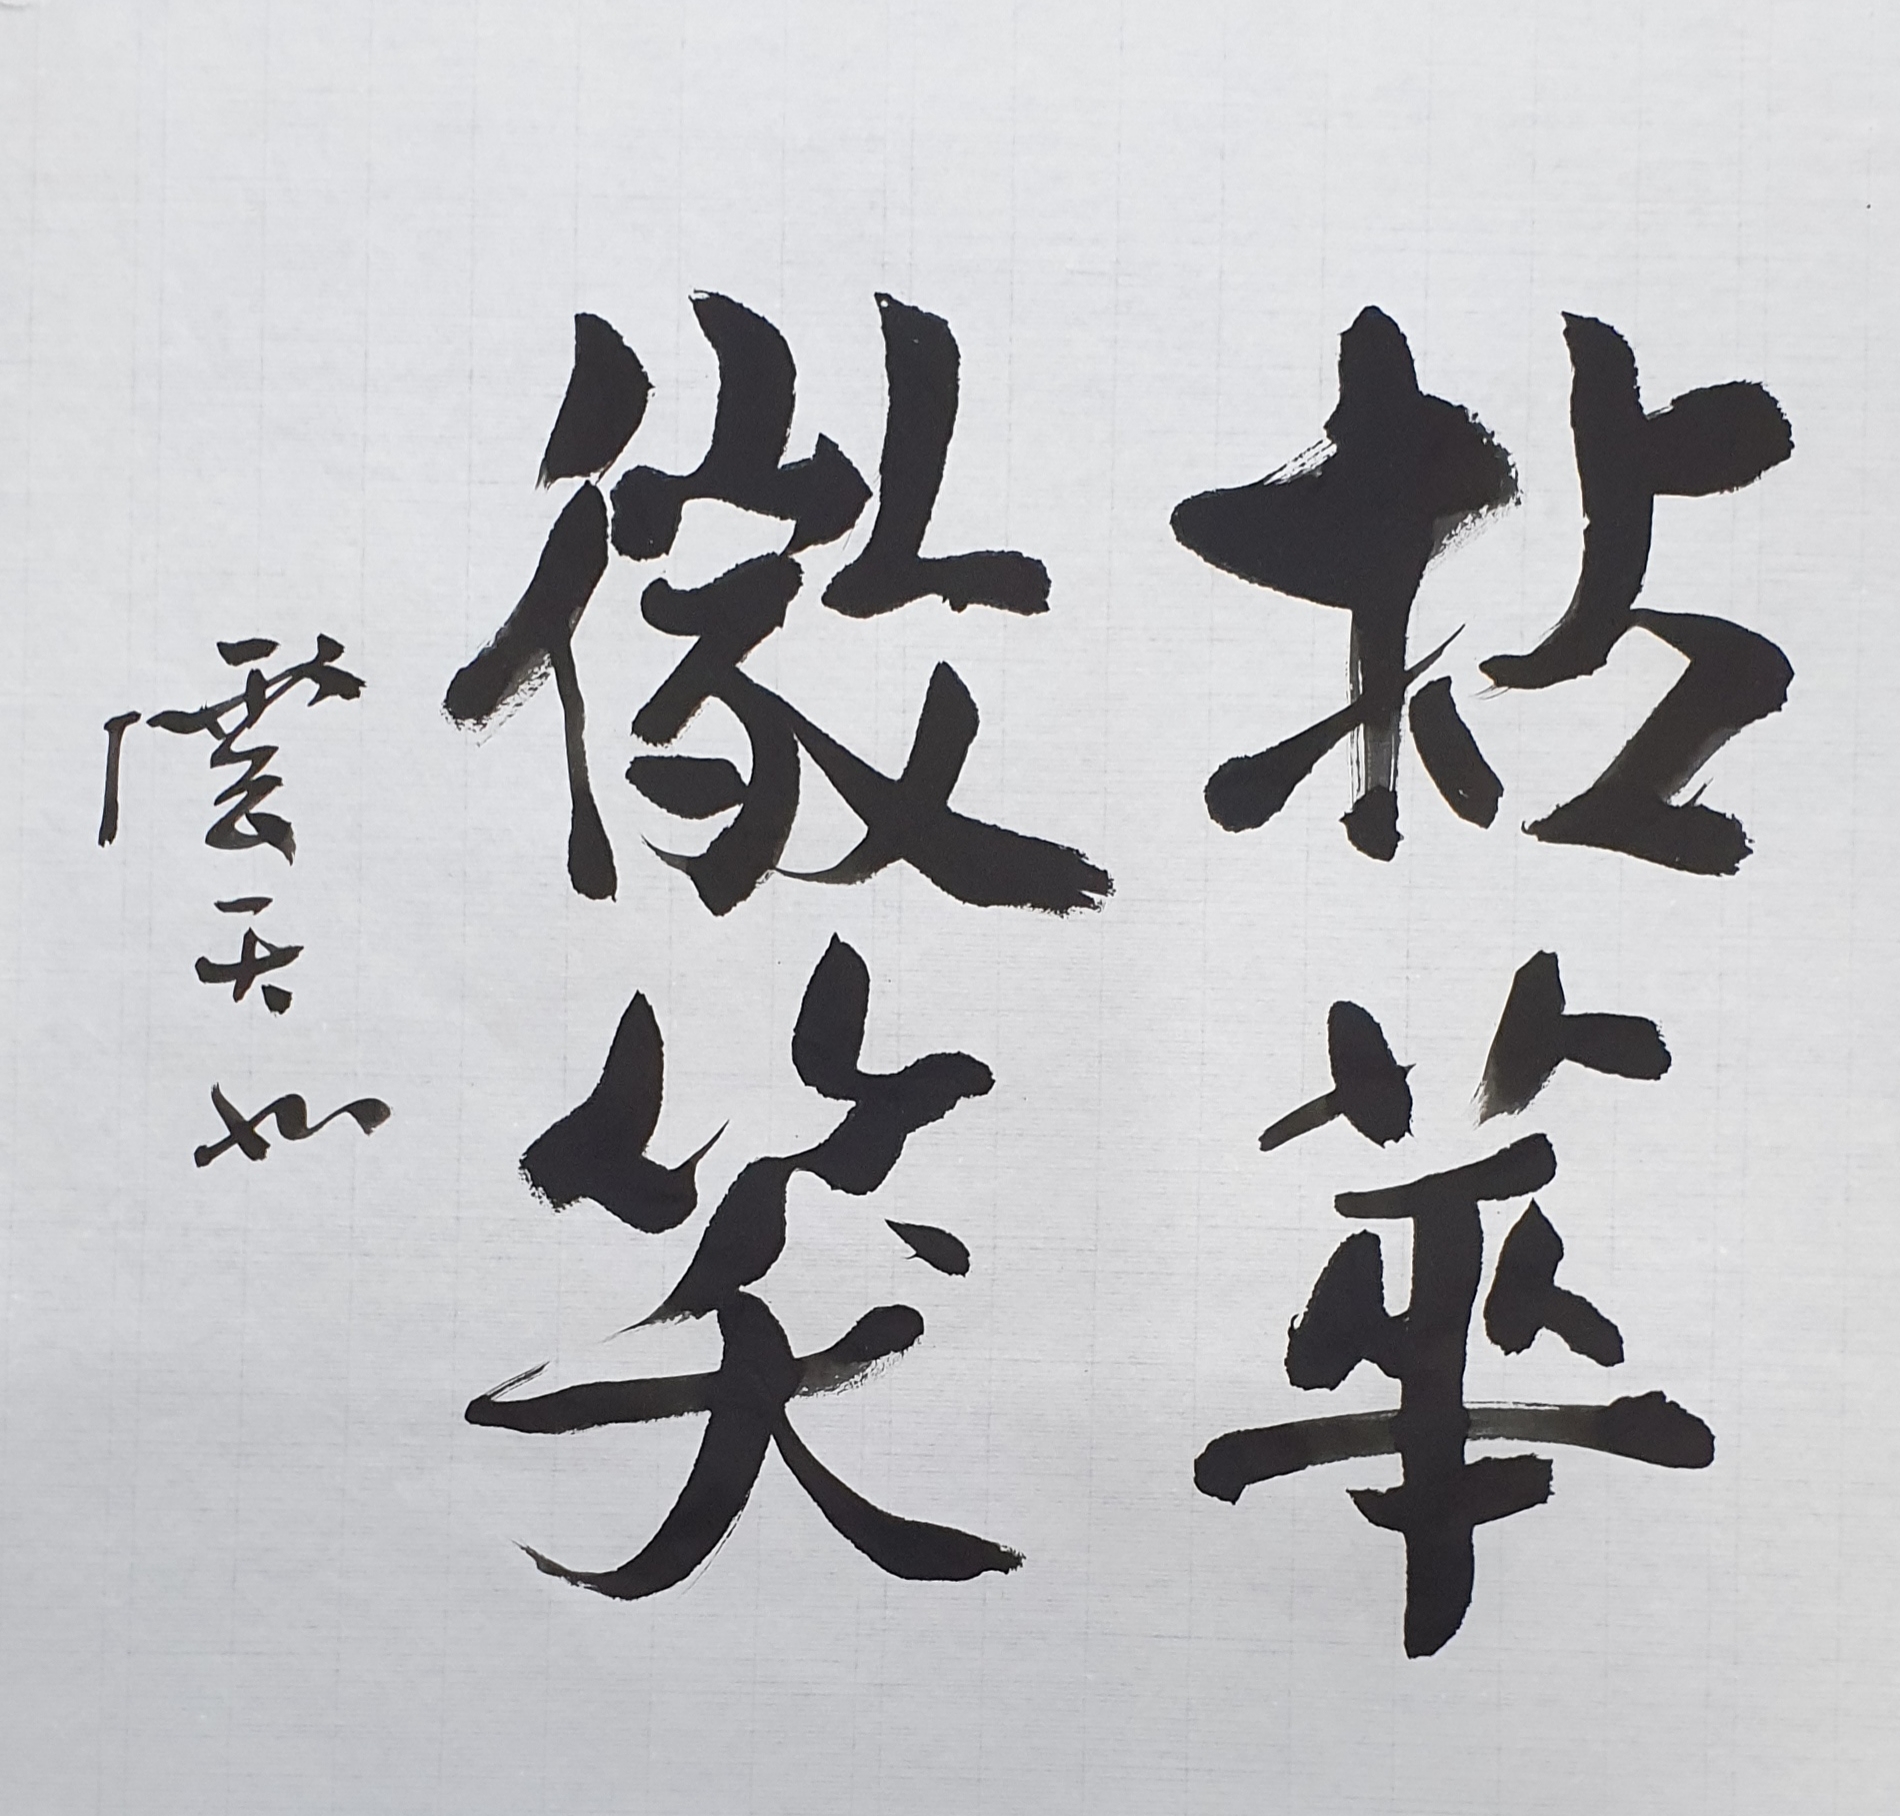 拈華
微笑
雲天如